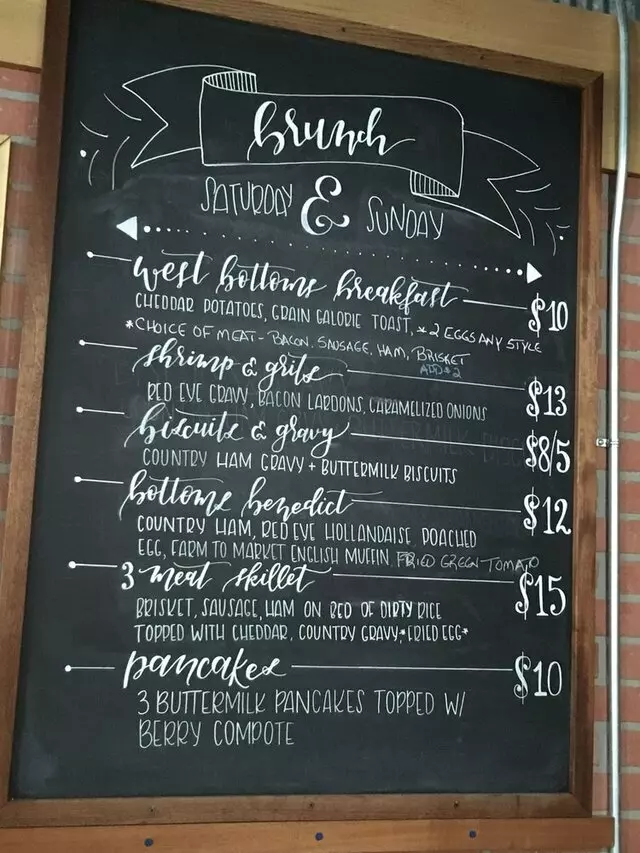 brunch
SATURDAY & SUNDAY
west bottoms breakfast $10
CHEDDAR POTATOES, GRAIN GALORE TOAST, * 2 EGGS ANY STYLE
*CHOICE OF MEAT - BACON, SAUSAGE, HAM, BRISKET
ADD $2
shrimp & grits $13
RED EYE GRAVY, BACON LARDONS, CARAMELIZED ONIONS
biscuits & gravy $8/5
COUNTRY HAM GRAVY + BUTTERMILK BISCUITS
bottoms benedict $12
COUNTRY HAM, RED EYE HOLLANDAISE, POACHED
EGG, FARM TO MARKET ENGLISH MUFFIN, FRIED GREEN TOMATO
3 meat skillet $15
BRISKET, SAUSAGE, HAM ON BED OF DIRTY RICE
TOPPED WITH CHEDDAR, COUNTRY GRAVY, *FRIED EGG*
pancakes $10
3 BUTTERMILK PANCAKES TOPPED W/
BERRY COMPOTE